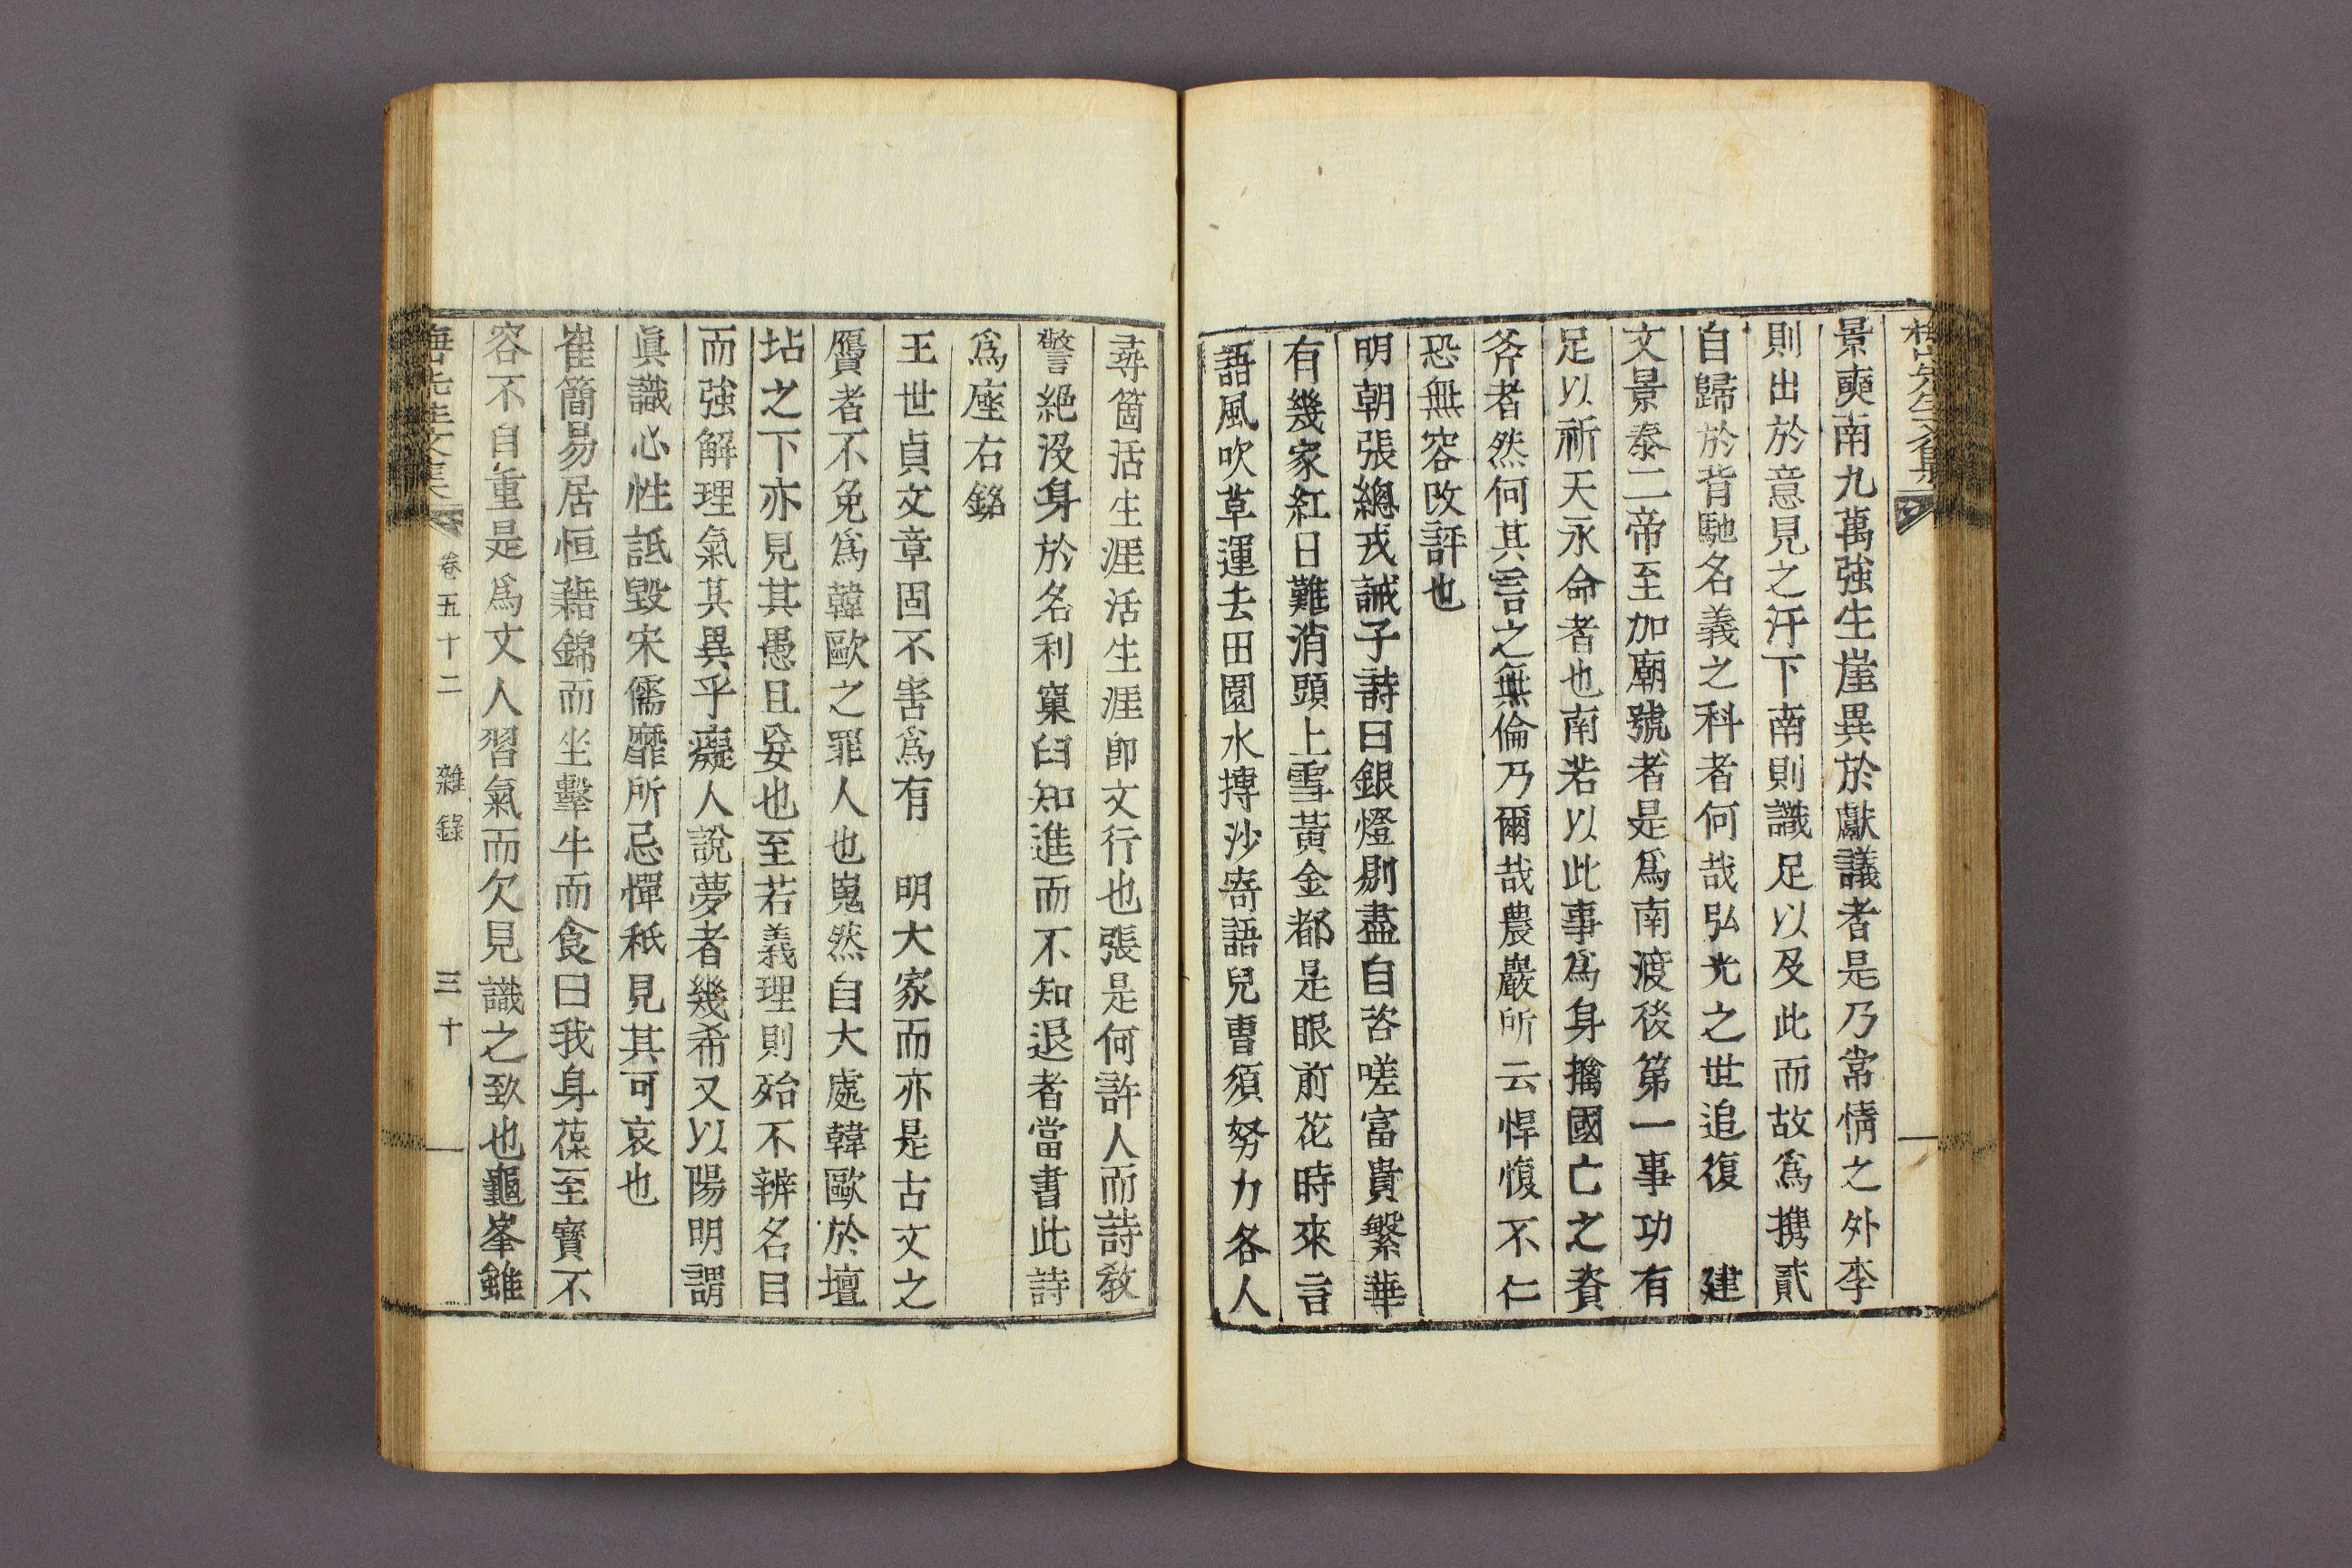 景奭南九萬強生崖異於獻議者是乃常情之外李
則出於意見之汗下南則識足以及此而故爲携貳
自歸於背馳名義之科者何哉弘光之世追復　建
文景泰二帝至加廟號者是爲南渡後第一事功有
足以祈天永命者也南若以此事爲身擒國亡之資
斧者然何其言之無倫乃爾哉農巖所云悍愎不仁
恐無容改評也
明朝張緫戎誡子詩曰銀燈剔盡自咨嗟富貴繁華
有幾家紅日難消頭上雪黃金都是眼前花時來言
語風吹草運去田園水摶沙寄語兒曺須努力各人
尋箇活生涯活生涯卽文行也張是何許人而詩敎
警絶沒身於名利窠臼知進而不知退者當書此詩
爲座右銘
王世貞文章固不害爲有　明大家而亦是古文之
贋者不免爲韓歐之罪人也嵬然自大處韓歐於壇
坫之下亦見其愚且妄也至若義理則殆不辨名目
而強解理氣其異乎癡人說夢者幾希又以陽明謂
眞識心性詆毀宋儒靡所忌憚秖見其可哀也
崔簡易居恒藉錦而坐擊牛而食曰我身葆至寶不
容不自重是爲文人習氣而欠見識之致也龜峯雖
先生文集　卷五十二　雜錄　三十